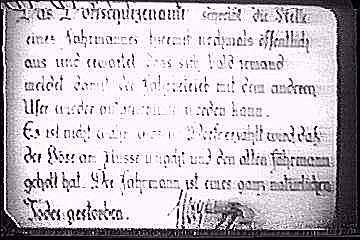 Das Dorfschulzenamt schreibt die Stelle
eines Fährmannes hiermit nochmals öffentlich
aus und erwartet dass sich bald jemand
meldet damit die Fährzeit mit dem anderen
Ufer wieder aufgenommen werden kann.
Es ist nicht wahr was im Dorfe erzählt wird daß
der Böse am Flusse umgeht und den alten Fährmann
geholt hat. Der Fährmann ist eines ganz natürlichen
Todes gestorben.